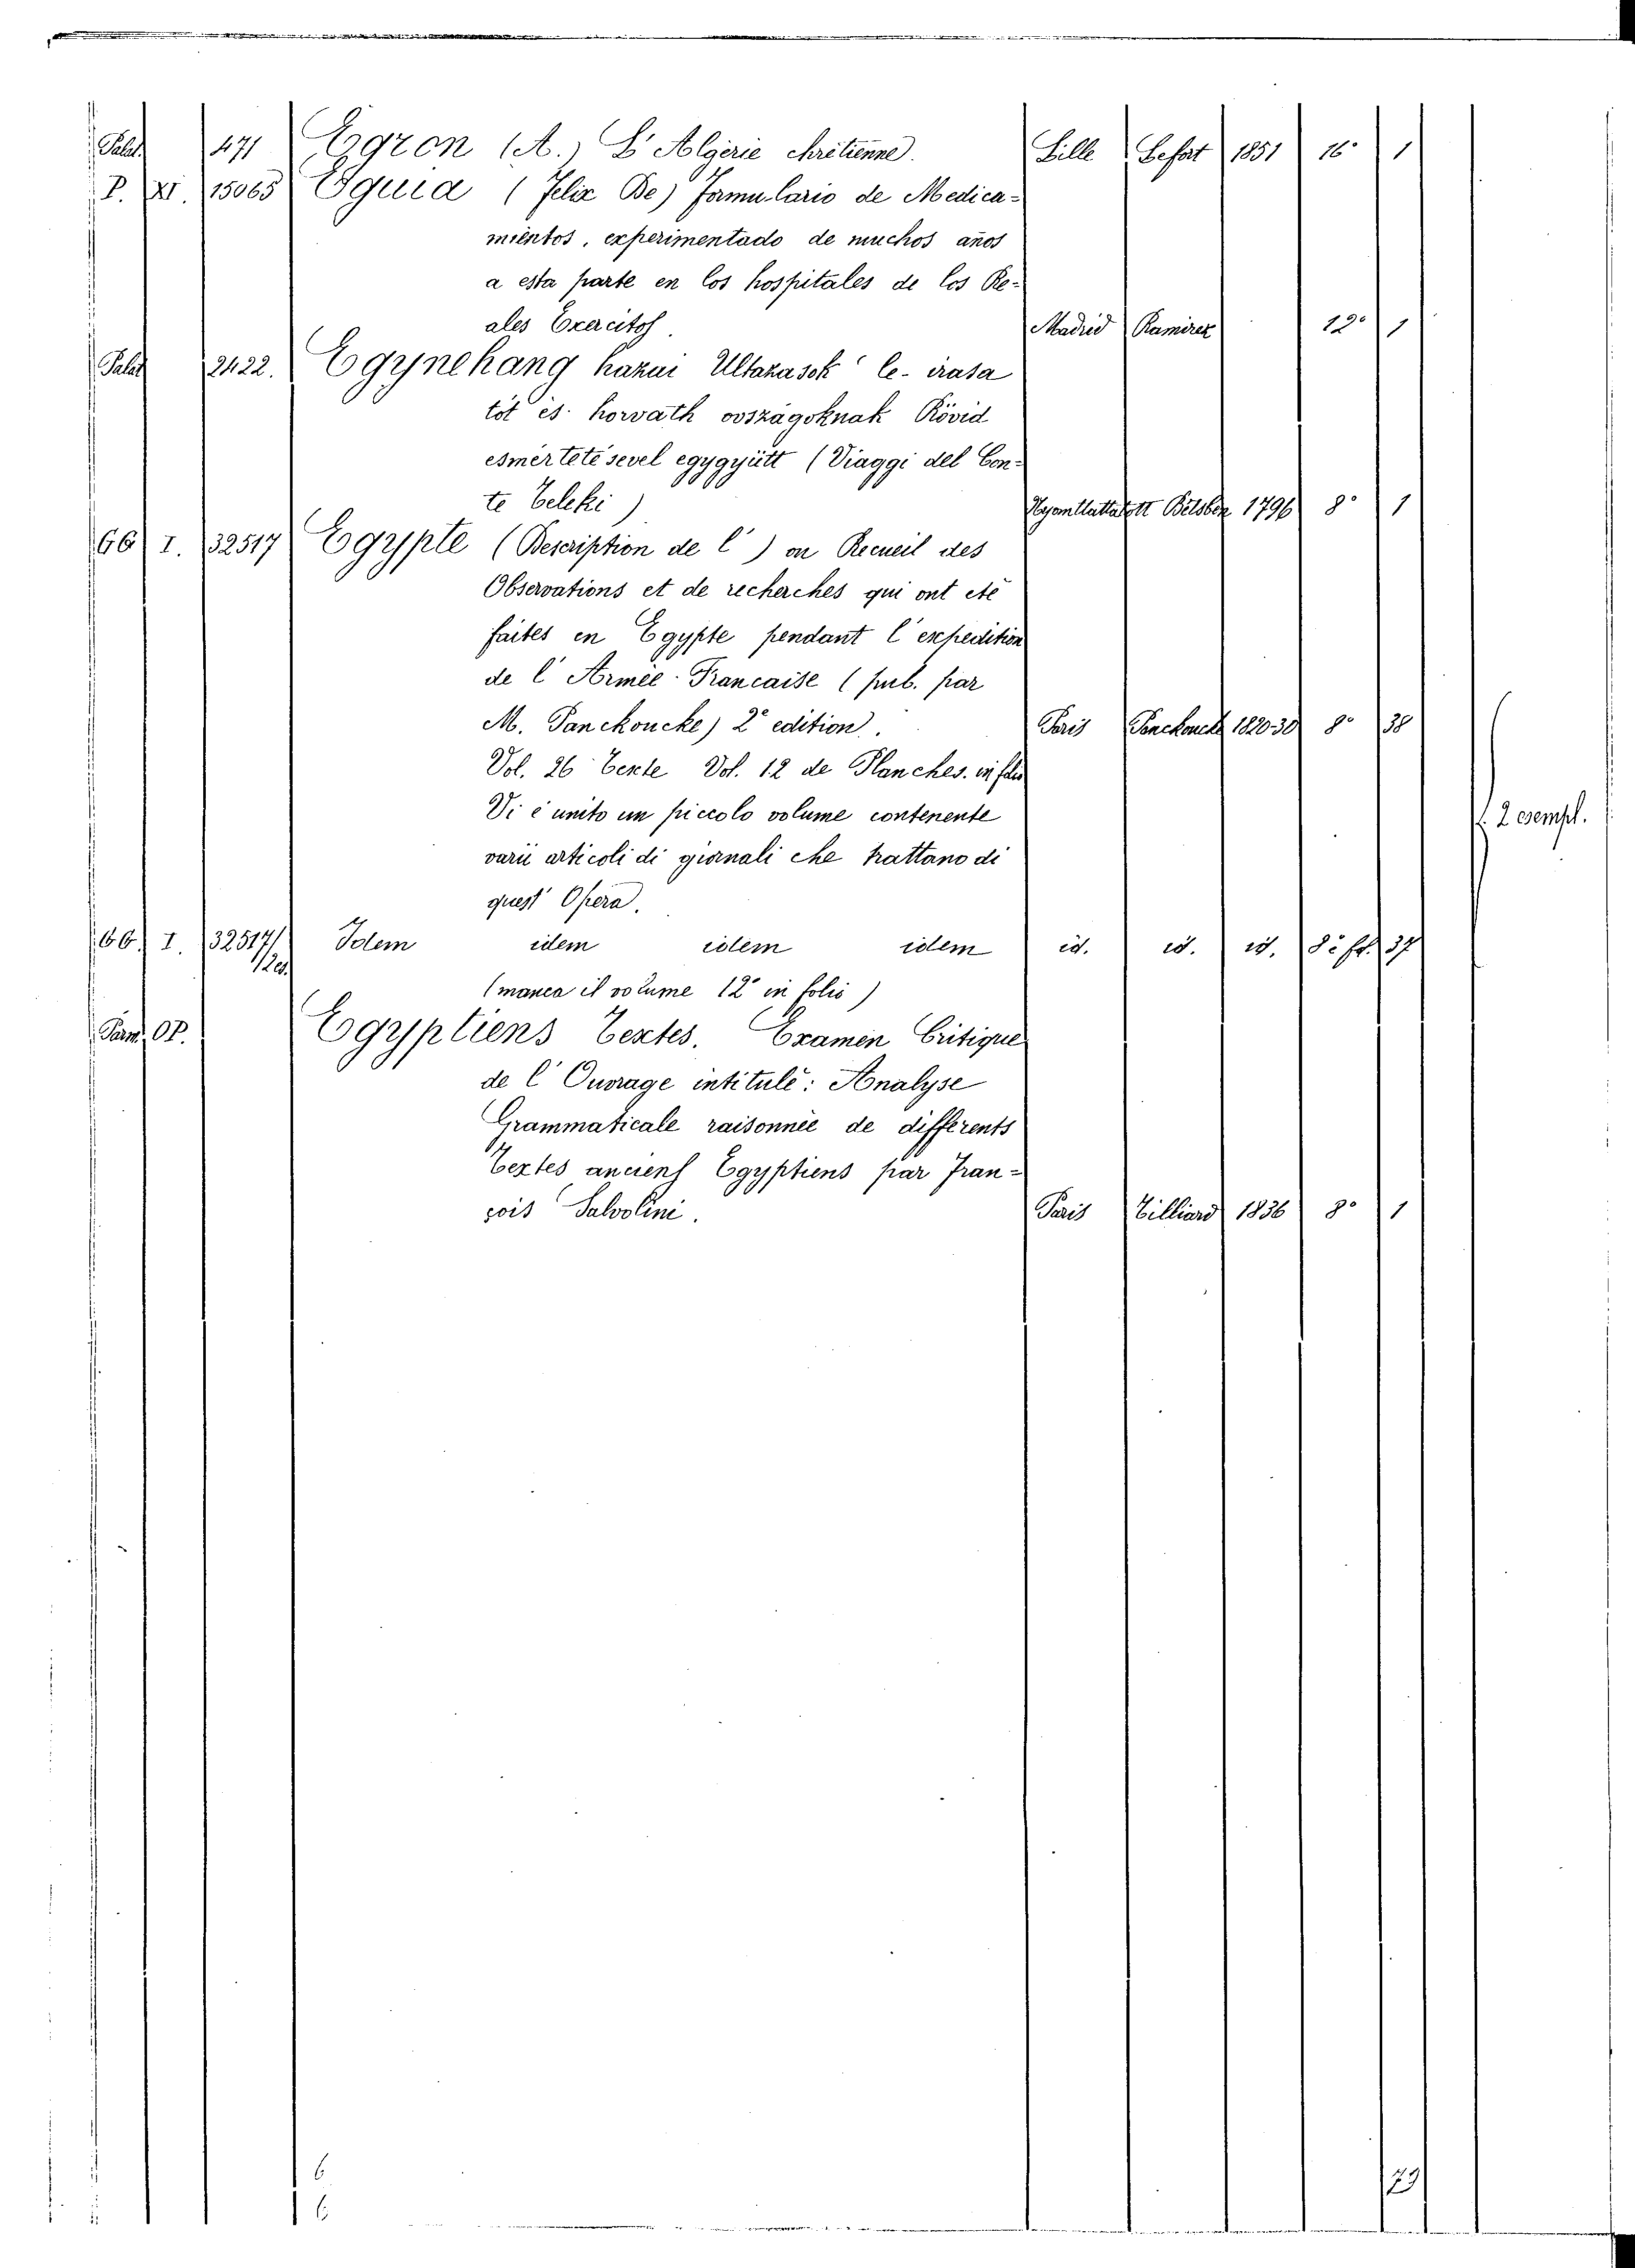 Palat. 471 Egron (A.) L'Algérie chrétienne. Lille Lefort 1851 16° 1
P. XI. 15065 Eguia (Felix De) Formulario de Medica=
mientos, experimentado de muchos años
a esta parte en los hospitales de los Re=
ales Exercitos. Madrid Ramirez 12° 1
Palat 2422. Egynehang hazai Utazasok le- irasa
tót és horváth országoknak Rövid
esmértetésevel egygyütt (Viaggi del Con=
te Teleki) Betsben 1796 8° 1
66 I. 32517 Egypte (Description de l') ou Recueil des
Observations et de recherches qui ont eté
faites en Egypte pendant l'expedition
de l'Armée Francaise (pub. par
M. Panckoucke) 2e edition. Paris Panckoucke 1820-30 8° 38
Vol. 26 Texte Vol. 12 de Planches. in folio
Vi è unito un piccolo volume contenente
varii articoli di giornali che trattano di
quest' Opera.
2 esempl.
66 I. 32517/ Idem idem idem idem id. id. id. 8° 37
(manca il volume 12° in folio)
Parm. OP. Egyptiens Textes. Examen Critique
de l'Ouvrage intitulé: Analyse
Grammaticale raisonnée de différents
Textes anciens Egyptiens par Fran=
çois Salvolini. Paris Tilliard 1836 8° 1
6
6
79